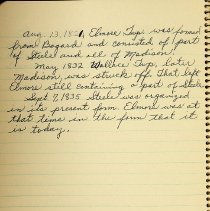 Aug. 13, 1821, Elmore Twp. was formed
from Bogard and consisted of part
of Steele and all of Madison.
May 1832 Wallace Twp, later
Madison, was struck off. That left
Elmore still containing a part of Steele
Sept. 7, 1835 Steele was organized
in its present form. Elmore was at
that time in the form that it
is today.